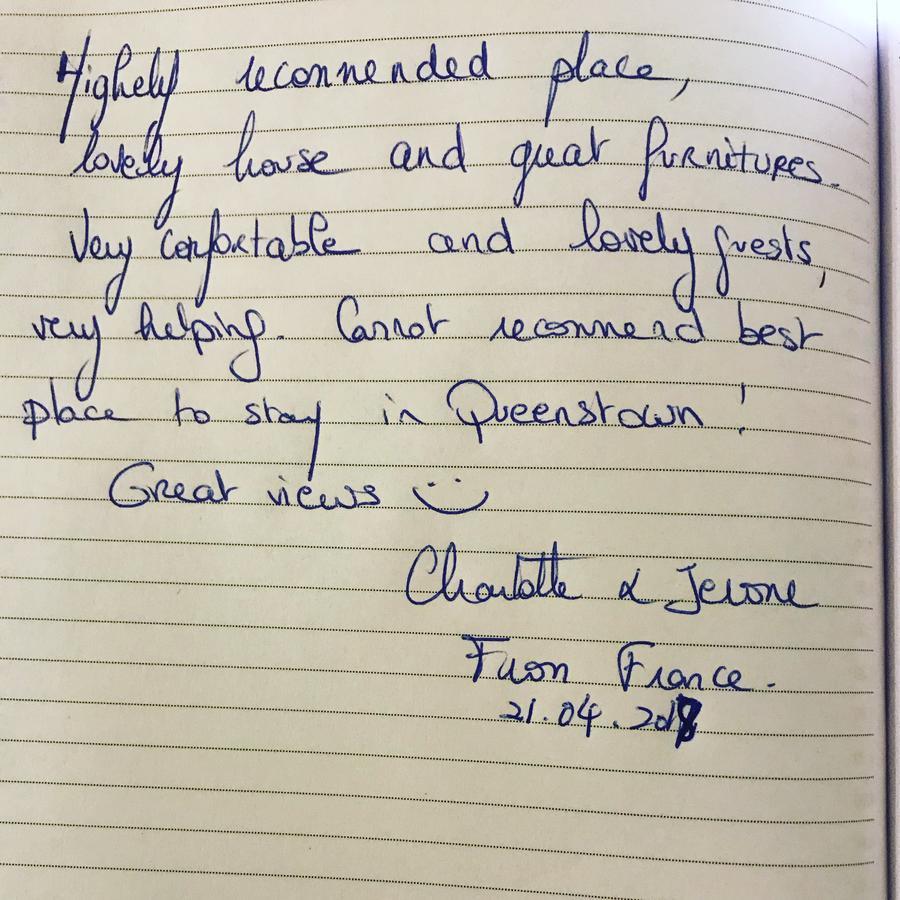 Highely recommended place,
lovely house and great furnitures.
Very confortable and lovely guests,
very helping. Cannot recommend best
place to stay in Queenstown !
Great views
Charlotte & Jerome
From France.
21.04.2018